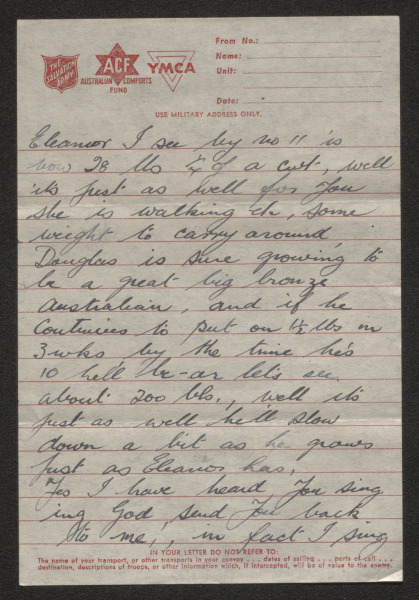 THE SALVATION ARMY
ACF
AUSTRALIAN COMFORTS FUND
YMCA
From No.:
Name:
Unit:
Date:
USE MILITARY ADDRESS ONLY.
Eleanor I see by no 11 is
now 28 lbs ¼ of a cwt, well
its just as well for You
she is walking etc, some
weight to carry around
Douglas is sure growing to
be a great big bronze
Australian, and if he
Continues to put on 1½ lbs in
3 wks by the time he's
10 he'll be-ar let's see.
about 200 lbs., well it's
just as well he'll slow
down a bit as he grows
just as Eleanor has,
Yes I have heard You sing
ing God, send You back
to me,, in fact I sing
IN YOUR LETTER DO NOT REFER TO:
The name of your transport, or other transports in your convoy . . . dates of sailing . . . ports of call . . .
destination, descriptions of troops, or other information which, if intercepted, will be of value to the enemy.